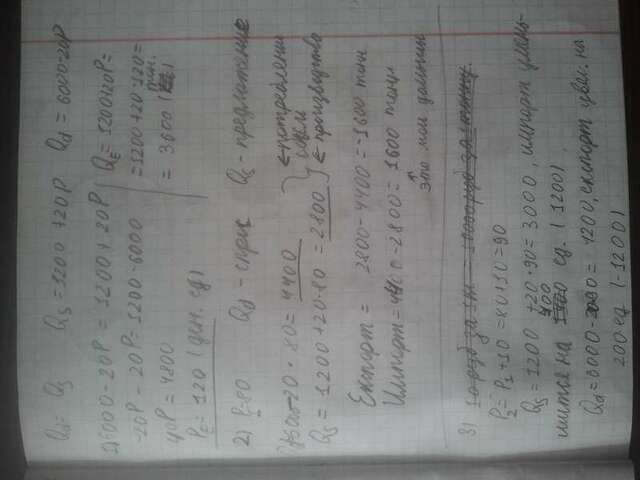 Qd = Qs Qs = 1200 + 20P Qd = 6000-20P
1) 6000 - 20P = 1200 + 20P
-20P - 20P = 1200 - 6000
40P = 4800
PE = 120 (ден. ед)
QE = 1200+20P =
= 1200 + 20 · 120 =
= 3600 (тон.)
2) P=80 Qd - спрос Qs - предложение
6000-20 · 80 = 4400 ← потребление соли
Qs = 1200 + 20·80 = 2800 ← производство
Експорт = 2800 - 4400 = -1600 тонн
Импорт = 4400 - 2800 = 1600 тонн
↑ это мои
3)
P2 = P1 + 10 = 80 + 10 = 90
Qs = 1200 + 20 · 90 = 3000, импорт умень-
шится на 400 ед. (1200)
Qd = 6000 - = 4200, експорт увел. на
200 ед (-1200)